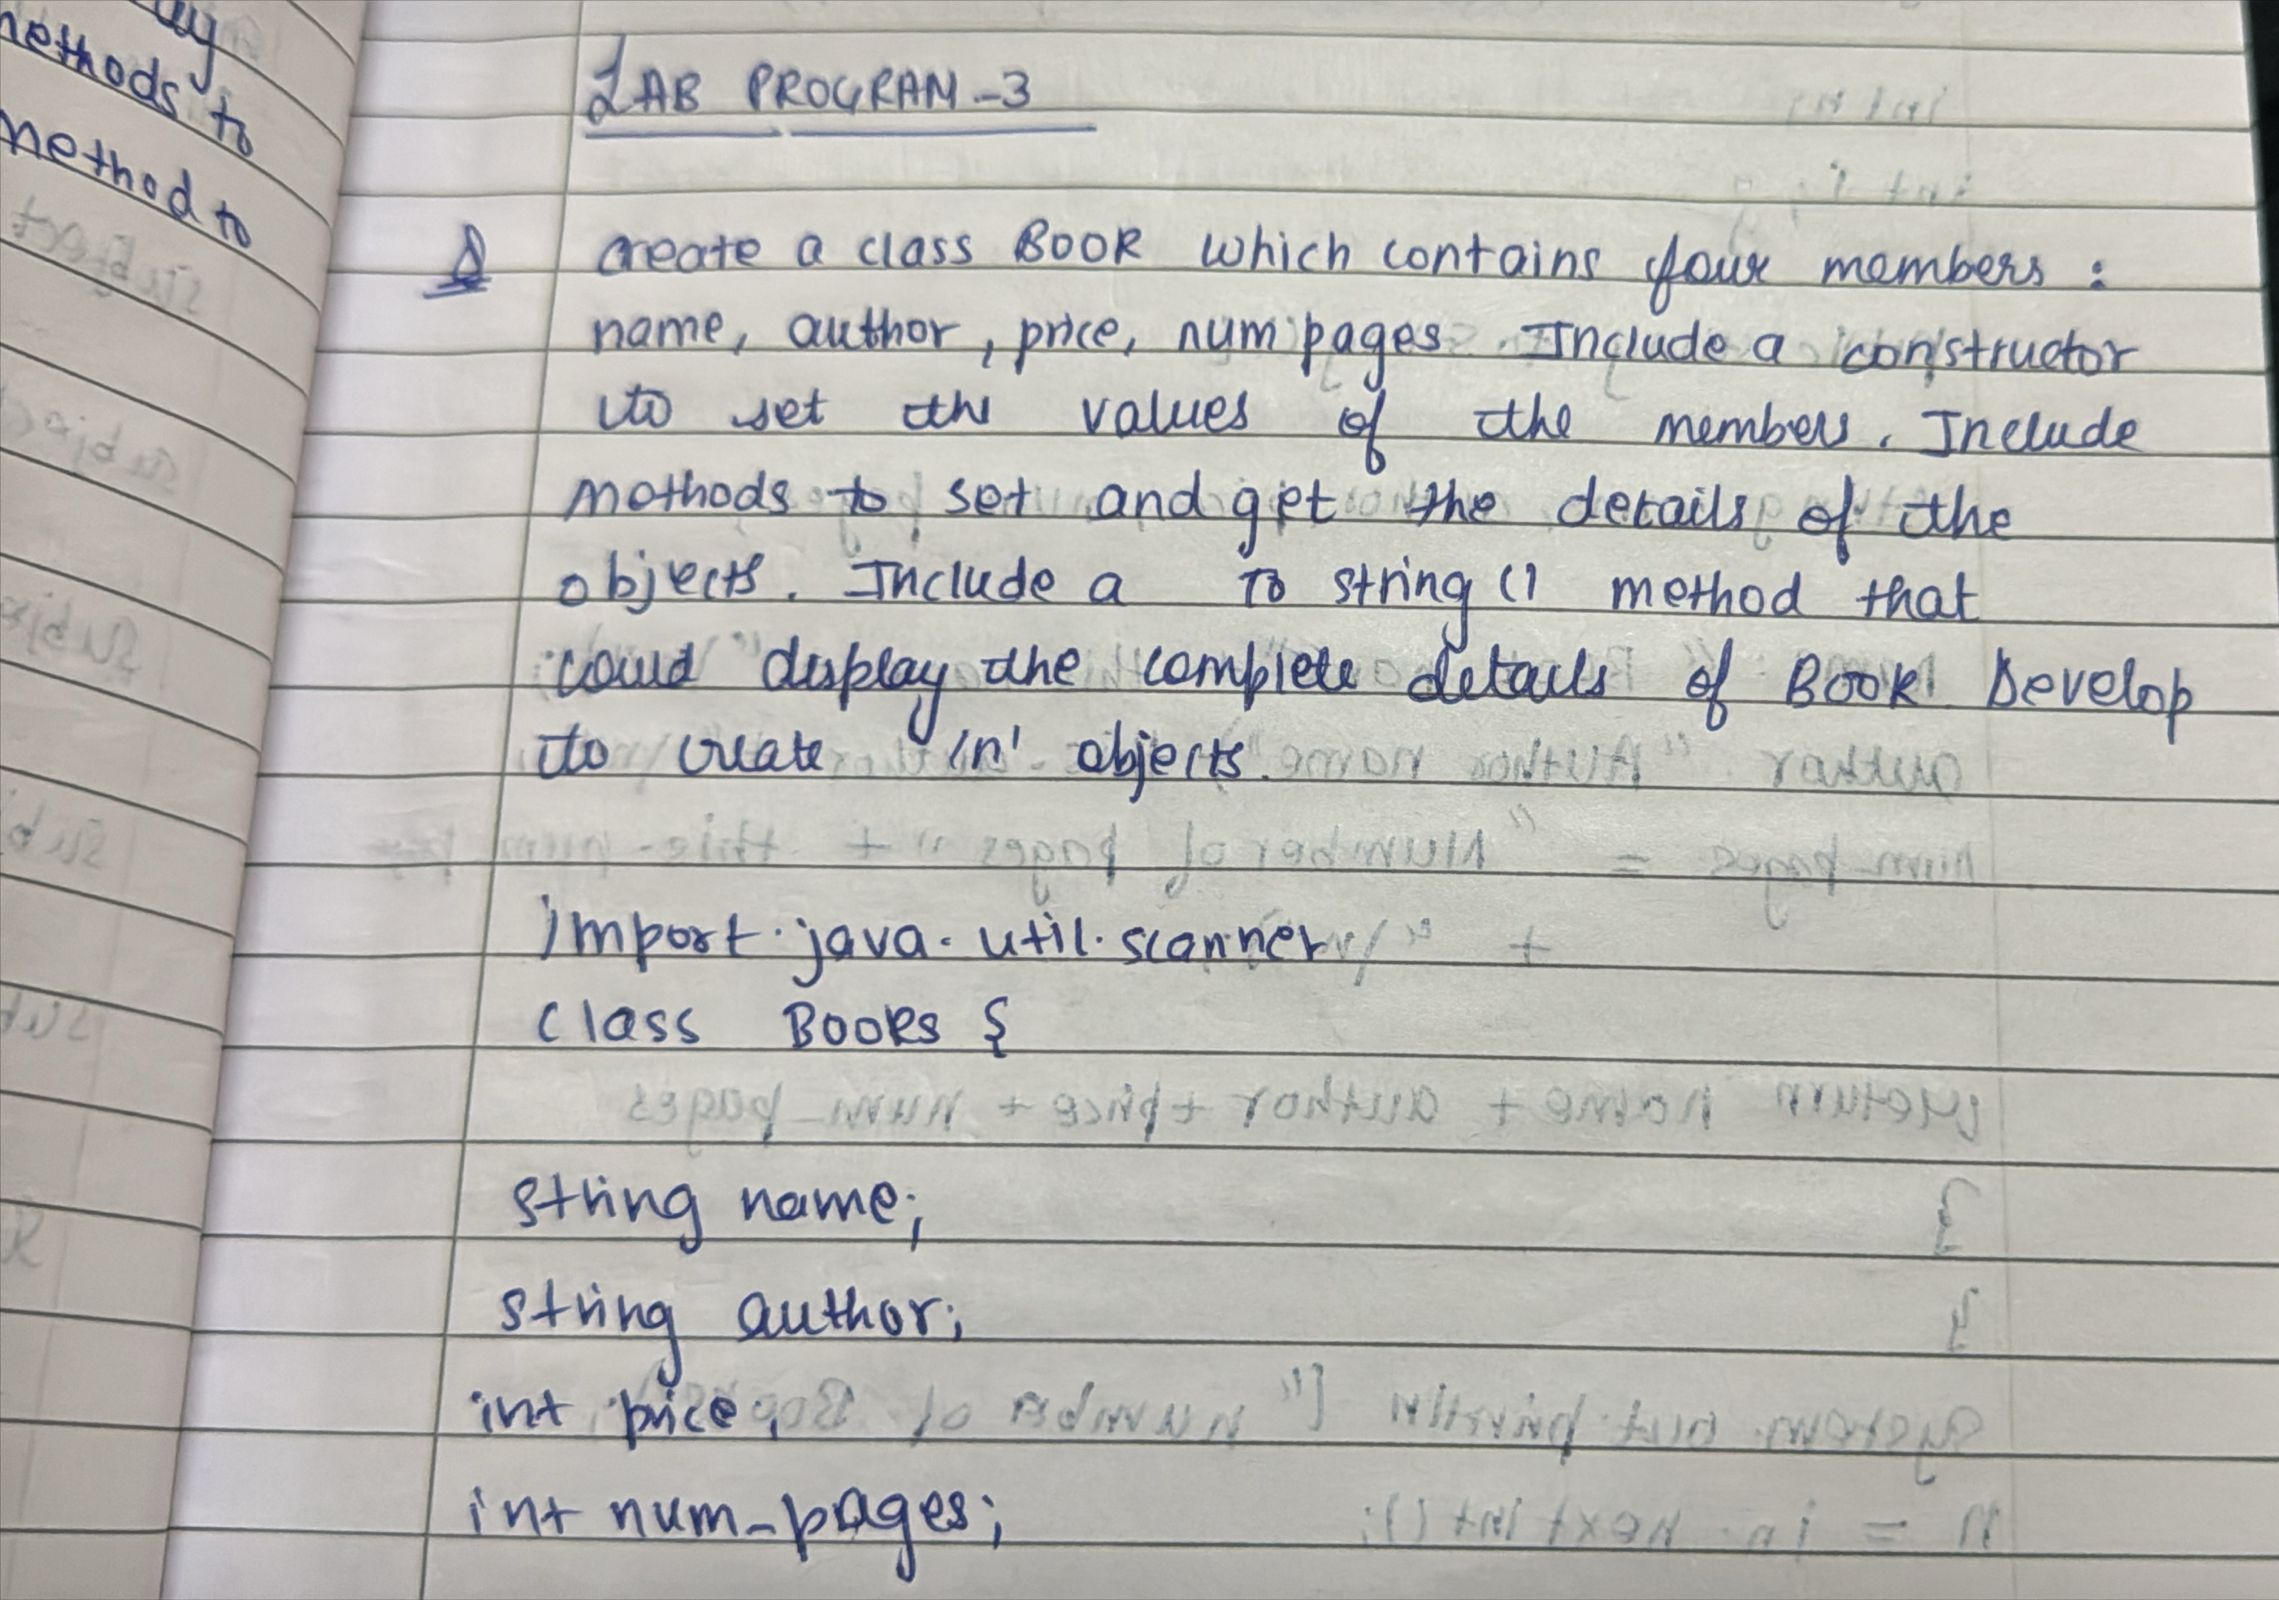 methods to
method to
LAB PROGRAM-3
Q create a class BOOK which contains four members :
name, author, price, num pages Include a constructor
to set the values of the members. Include
methods to set and get the details of the
objects. Include a To string () method that
could display the complete details of BOOK Develop
to create 'n' objects.
import.java.util.scanner
class Books {
string name;
string author;
int price;
int num_pages;